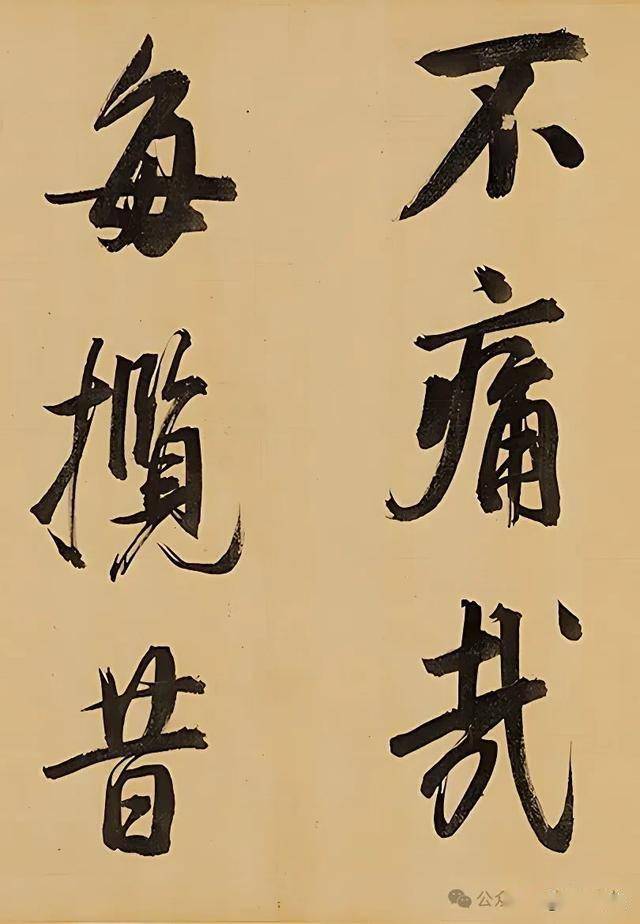 不痛哉
每攬昔
公众